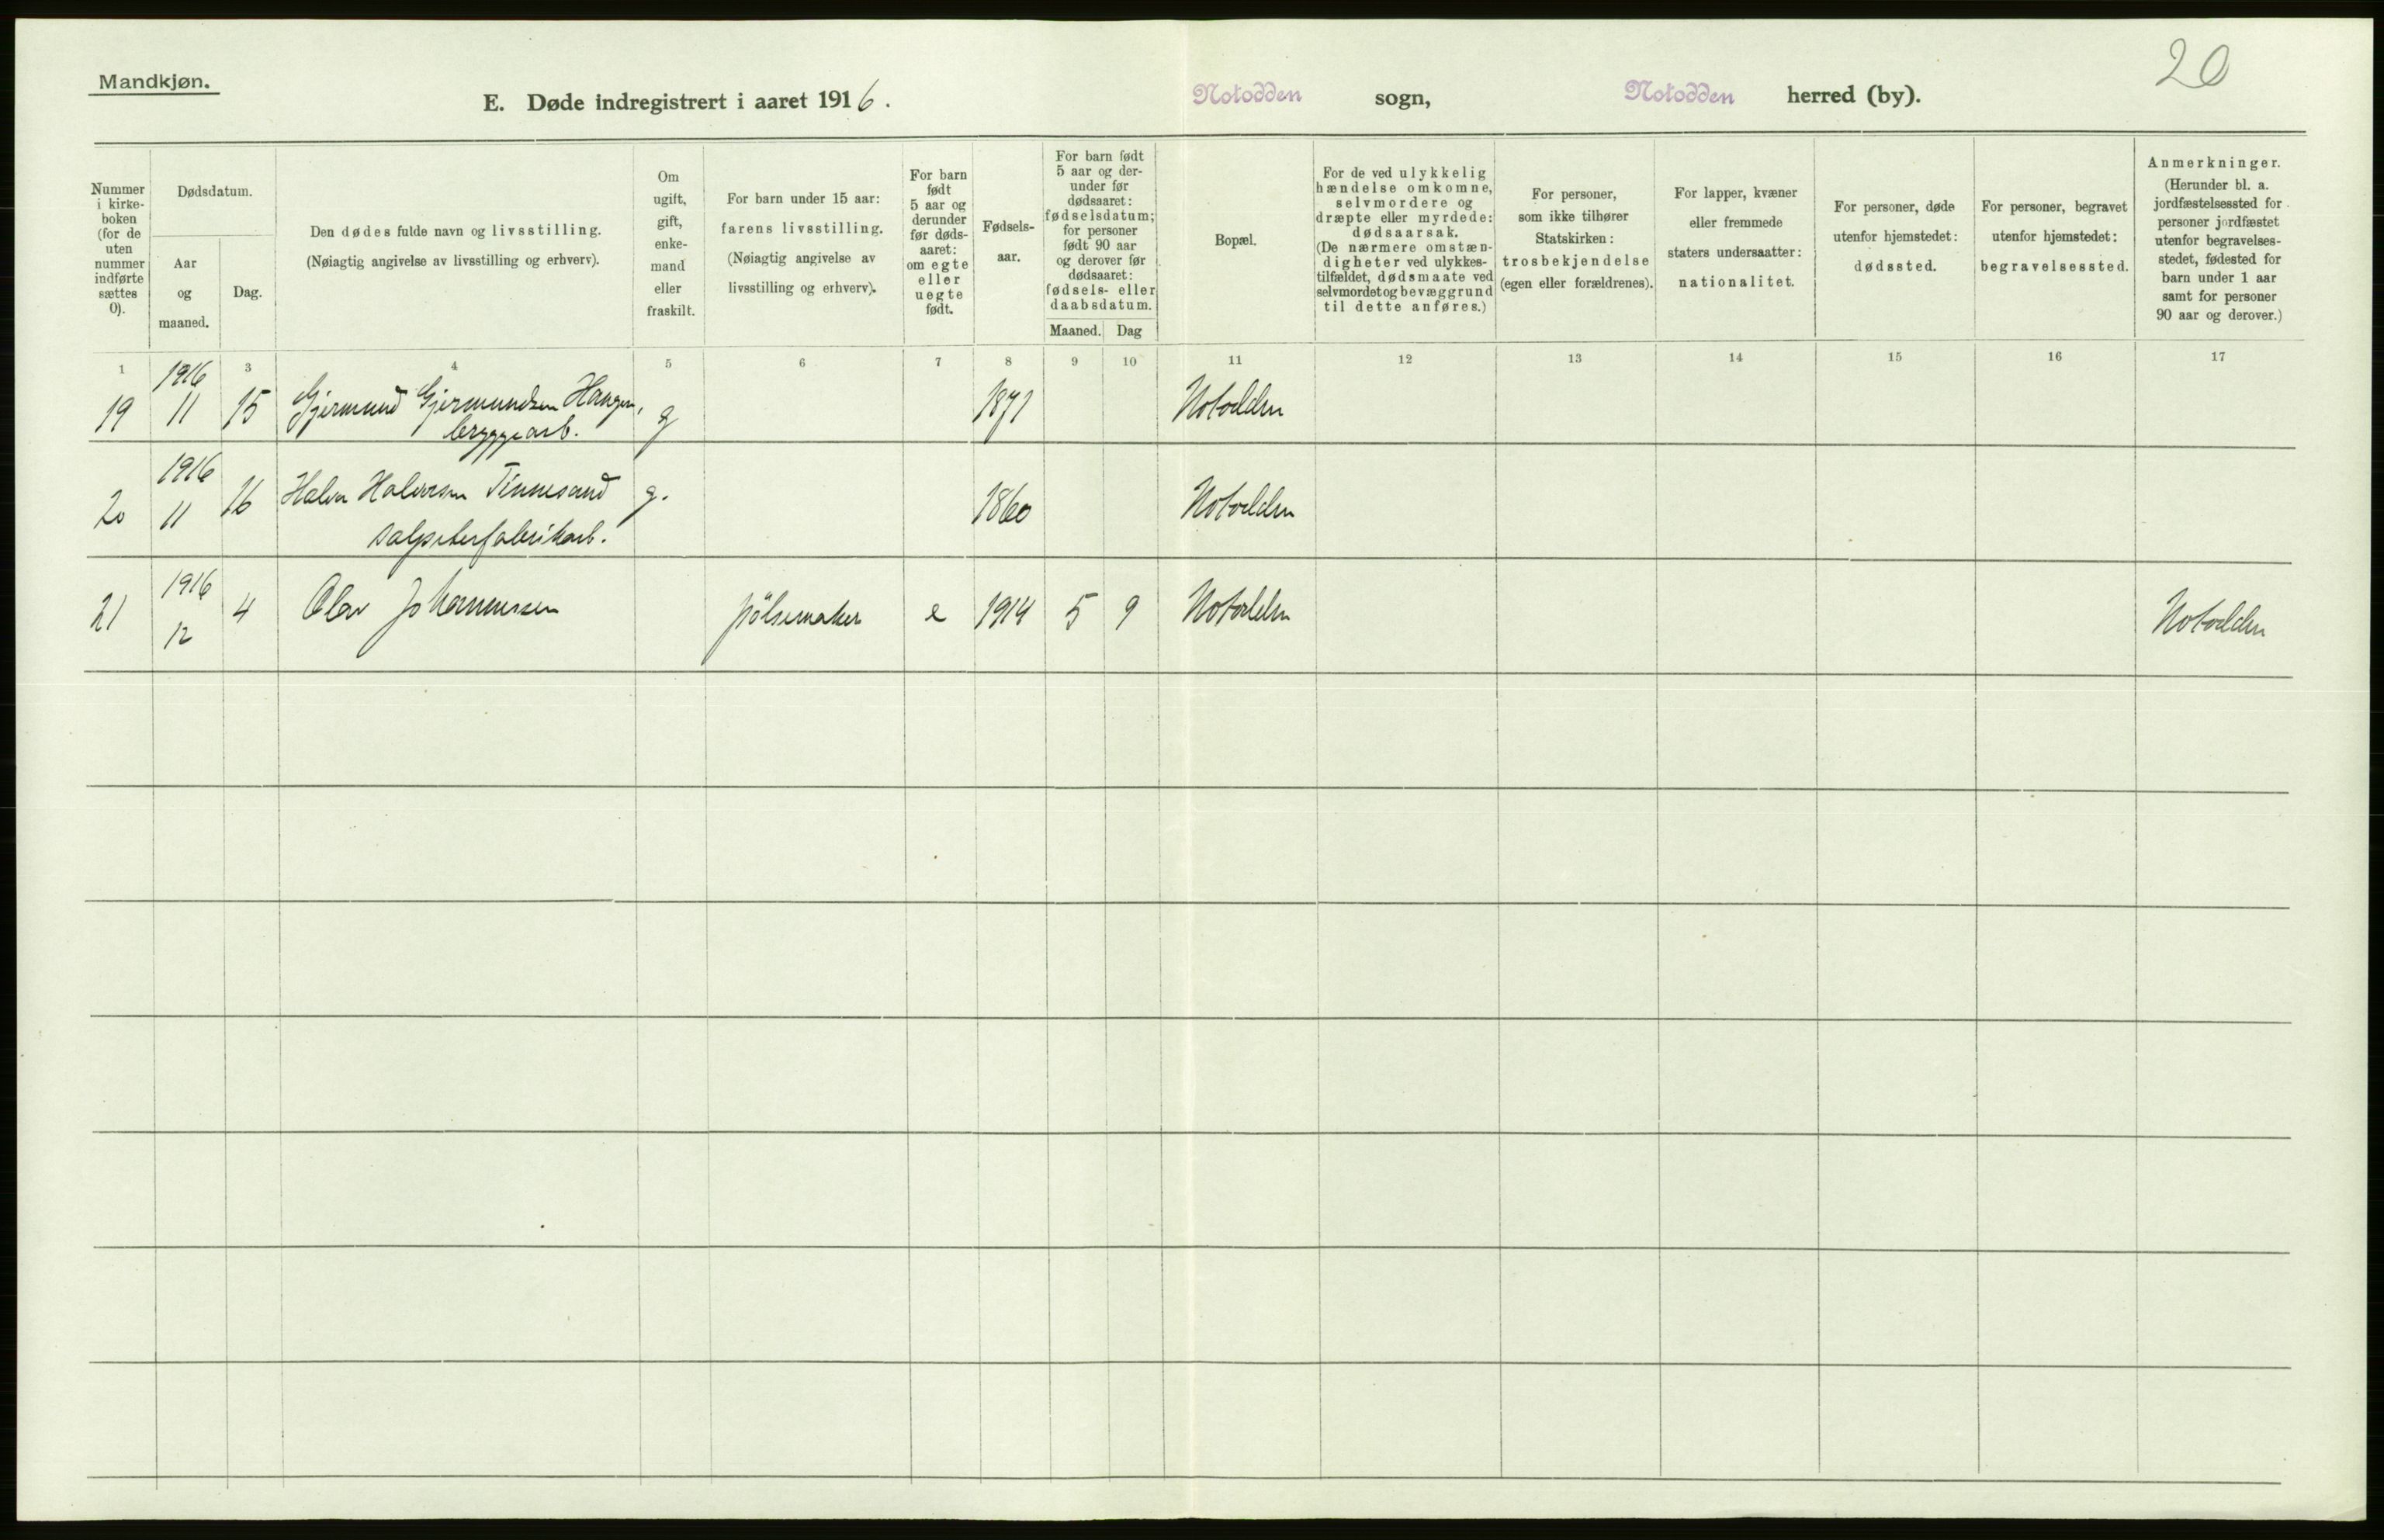 Mandkjøn.
20
E. Døde indregistrert i aaret 1916.
Notodden sogn,
Notodden herred (by).
Nummer
i kirke-
boken
(for de
uten
nummer
indførte
sættes
0).
Dødsdatum.
Aar
og
maaned.
Dag.
Den dødes fulde navn og livsstilling.
(Nøiagtig angivelse av livsstilling og erhverv).
Om
ugift,
gift,
enke-
mand
eller
fraskilt.
For barn under 15 aar:
farens livsstilling.
(Nøiagtig angivelse av
livsstilling og erhverv).
For barn
født
5 aar og
derunder
før døds-
aaret:
om egte
eller
uegte
født.
Fødsels-
aar.
For barn født
5 aar og der-
under før
dødsaaret:
fødselsdatum;
for personer
født 90 aar
og derover før
dødsaaret:
fødsels- eller
daabsdatum.
Maaned. Dag
Bopæl.
For de ved ulykkelig
hændelse omkomne,
selvmordere og
dræpte eller myrdede:
dødsaarsak.
(De nærmere omstæn-
digheter ved ulykkes-
tilfældet, dødsmaate ved
selvmordet og bevæggrund
til dette anføres.)
For personer,
som ikke tilhører
Statskirken:
trosbekjendelse
(egen eller forældrenes).
For lapper, kvæner
eller fremmede
staters undersaatter:
nationalitet.
For personer, døde
utenfor hjemstedet:
dødssted.
For personer, begravet
utenfor hjemstedet:
begravelsessted.
Anmerkninger.
(Herunder bl. a.
jordfæstelsessted for
personer jordfæstet
utenfor begravelses-
stedet, fødested for
barn under 1 aar
samt for personer
90 aar og derover.)
1 3 4 5 6 7 8 9 10 11 12 13 14 15 16 17
1916
19 11 15 Gjermund Gjermundsen Haugen, g 1871 Notodden
bryggearb.
1916
20 11 16 Halvor Halvorsen Tinnesand g. 1860 Notodden
salpeterfabrikarb.
1916
21 12 4 Olav Johannessen pölsemaker e 1914 5 9 Notodden Notodden